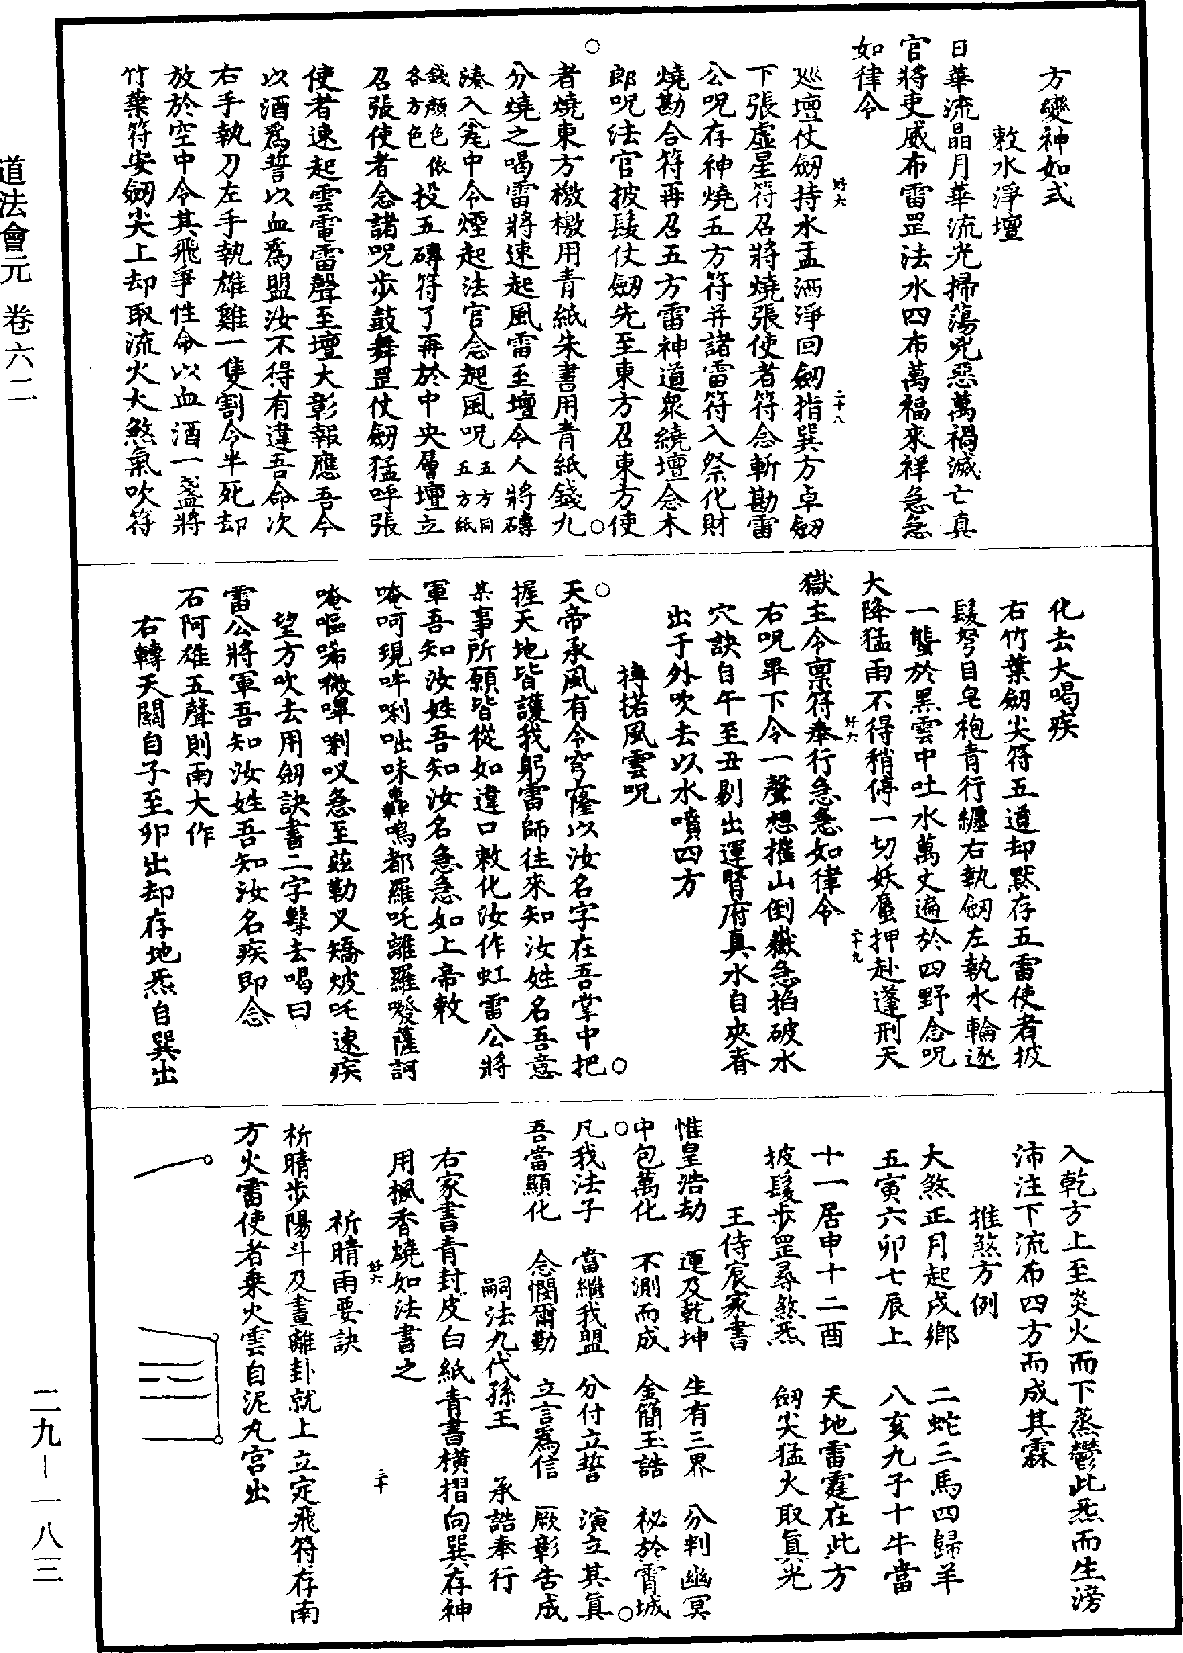 方變神如式
敕水淨壇
日華流晶月華流光掃蕩兇惡萬禍滅亡真
官將吏威布雷罡法水四布萬福來祥急急
如律令
巡壇仗劒持水盂洒淨回劒指巽方卓劒
下張虛星符召將燒張使者符念斬勘雷
公呪存神燒五方符并諸雷符入祭化財
燒勘合符再召五方雷神道衆繞壇念木
郎呪法官披髮仗劒先至東方召東方使
者燒東方檄檄用青紙朱書用青紙錢九
分燒之喝雷將速起風雷至壇令人將磚
湊入窰中令煙起法官念起風呪五方同五方紙
錢顏色依各方色投五磚符了再於中央層壇立
召張使者念諸呪步鼓舞罡仗劒猛呼張
使者速起雲電雷聲至壇大彰報應吾今
以酒爲誓以血爲盟汝不得有違吾命次
右手執刀左手執雄雞一隻割令半死却
放於空中令其飛爭性命以血酒一盞將
竹葉符安劒尖上却取流火大煞氣吹符
化去大喝疾
右竹葉劒尖符五道却默存五雷使者披
髮弩目皂袍青行纏右執劒左執水輪逐
一聲於黑雲中吐水萬丈遍於四野念呪
大降猛雨不得稍停一切妖蜃押赴蓬刑天
獄主令稟符奉行急急如律令
右呪畢下令一聲想摧山倒嶽急掐破水
穴訣自午至丑剔出運腎府真水自夾脊
出于外吹去以水噴四方
摶撦風雲呪
天帝承風有令穹窿以汝名字在吾掌中把
握天地皆護我躬雷師往來知汝姓名吾意
某事所願皆從如違口敕化汝作虹雷公將
軍吾知汝姓吾知汝名急急如上帝敕
唵呵現吽唎咄味轟鳴都羅吒離羅噬薩訶
唵嘔唏微嗶唎叹急至茲勒叉矯焌吒速疾
望方吹去用劒訣書二字擊去喝曰
雷公將軍吾知汝姓吾知汝名疾即念
石阿雄五聲則雨大作
右轉天關自子至卯出却存地炁自巽出
入乾方上至炎火而下蒸鬱此炁而生滂
沛注下流布四方而成其霖
推煞方例
大煞正月起戌鄉　二蛇三馬四歸羊
五寅六卯七辰上　八亥九子十牛當
十一居申十二酉　天地雷霆在此方
披髮步罡尋煞炁　劒尖猛火取真光
王侍宸家書
惟皇浩劫　運及乾坤　生有三界　分判幽冥
中包萬化　不測而成　金簡玉誥　祕於霄城
凡我法子　當繼我盟　分付立誓　演立其真
吾當顯化　念憫爾勤　立言爲信　厥彰告成
嗣法九代孫王　承誥奉行
右家書青封皮白紙青書橫摺向巽存神
用楓香燒如法書之
祈晴雨要訣
祈晴步陽斗及畫離卦就上立定飛符存南
方火雷使者乘火雲自泥丸宮出
道法會元　卷六二
二九—一八三